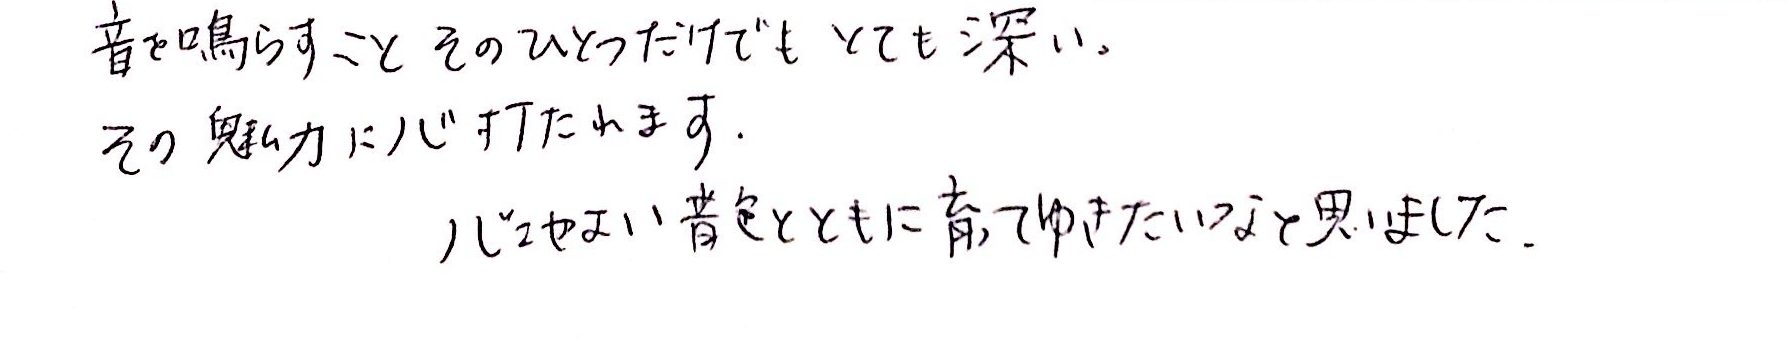 音を鳴らすこと そのひとつだけでも とても深い。
その魅力に心打たれます.
心コせよい音色とともに育ってゆきたいなと思いました.